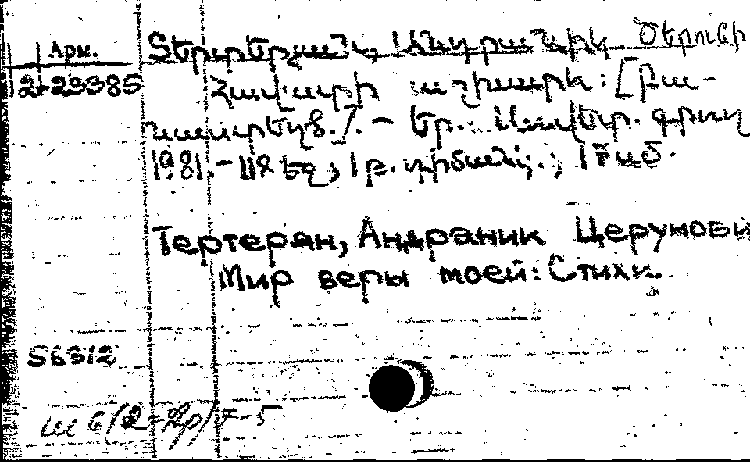 Арм.
2-29385
Տերտերյան, Անդրանիկ Ծերունի
Հավատի աշխարհ: [Բա-
նաստեղծ.]. – Եր.: Սովետ. գրող
1981. – 112 եջ;
Тертерян, Андраник Церунови
Мир веры моей: Стихи.
56312